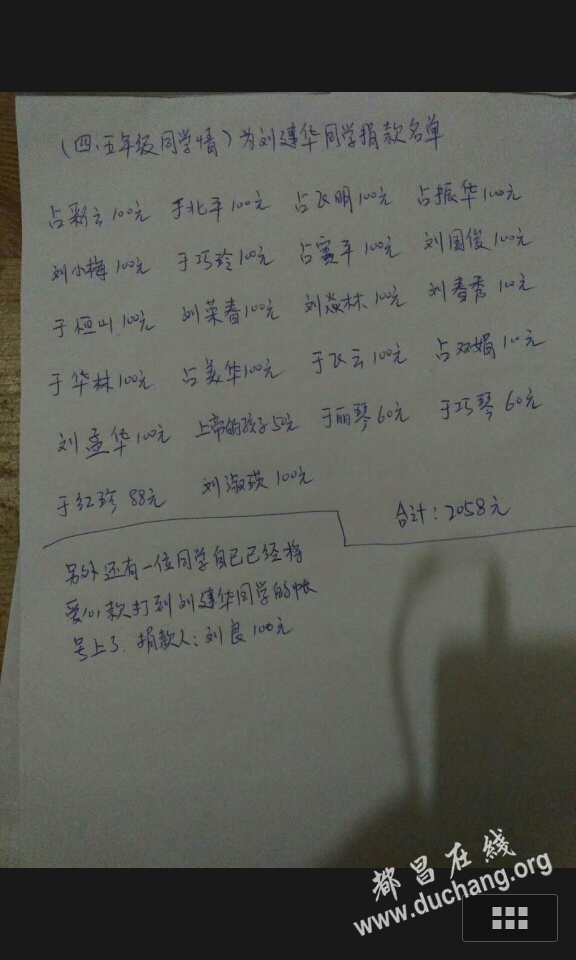 （四、五年级同学情）为刘建华同学捐款名单
占彩云100元 于北平100元 占飞明100元 占振华100元
刘小梅100元 于巧玲100元 占赛平100元 刘国俊100元
于恒山100元 刘荣春100元 刘焱林100元 刘春秀100元
于华林100元 占美华100元 于飞云100元 占双娟100元
刘孟华100元 上帝的孩子50元 于丽琴60元 于巧琴60元
于红珍88元 刘淑瑛100元
合计：2058元
另外还有一位同学自己已经将
爱心款打到刘建华同学的帐
号上了.捐款人：刘良100元
都昌在线
www.duchang.org